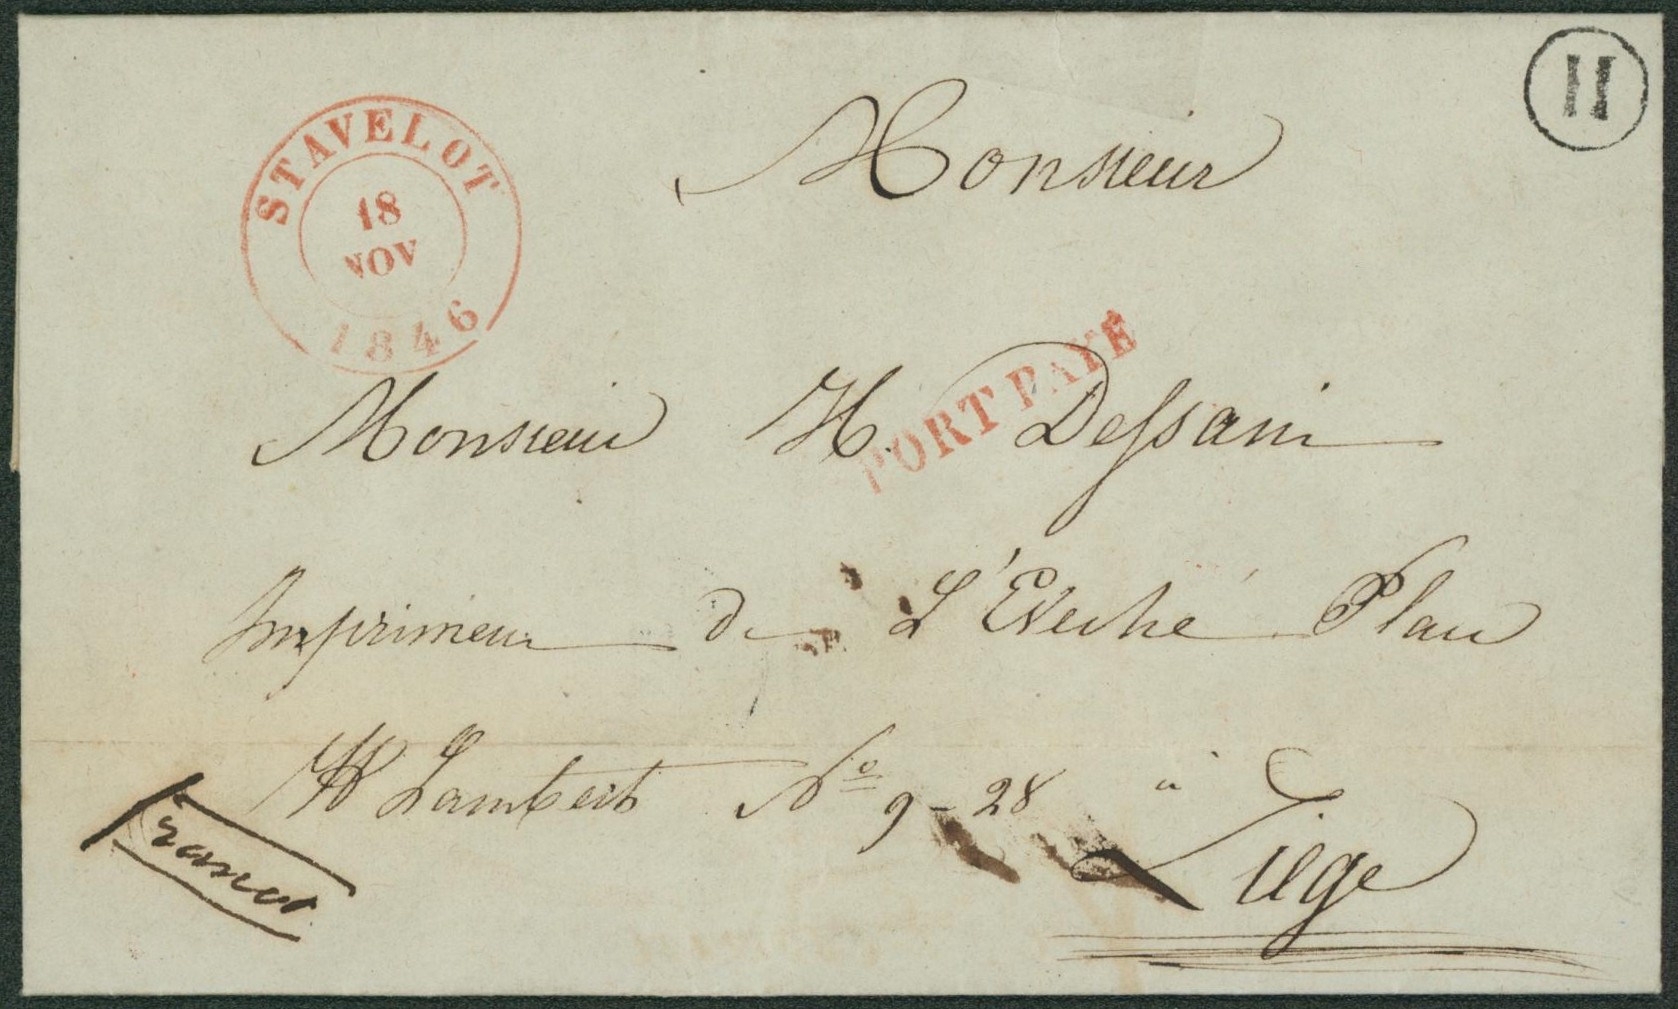 H
STAVELOT
18
NOV
1846
Monsieur
PORT PAYÉ
Monsieur H. Dessain
Imprimeur de L'Evéché Place
St Lambert No 9-28 à
Liége
franco